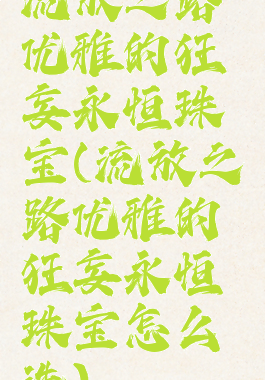 流放之路
优雅的狂
妄永恒珠
宝(流放之
路优雅的
狂妄永恒
珠宝怎么
选)